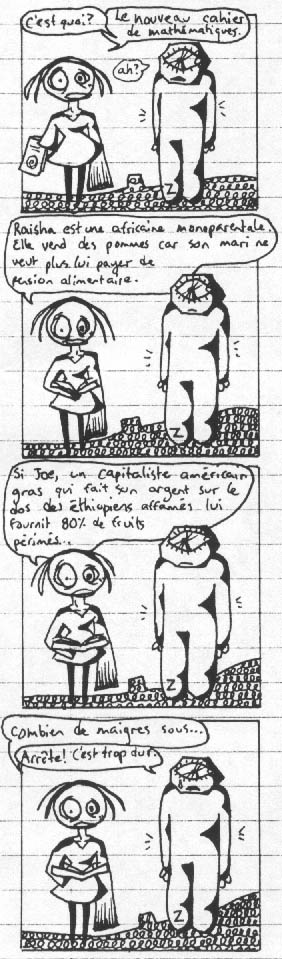 C'est quoi?
Le nouveau cahier
de mathématiques.
ah?
Z
Raisha est une africaine monoparentale.
Elle vend des pommes car son mari ne
veut plus lui payer de
pension alimentaire.
Z
Si Joe, un capitaliste américain
gras qui fait son argent sur le
dos des éthiopiens affamés lui
fournit 80% de fruits
périmés...
Z
Combien de maigres sous...
Arrête! C'est trop dur.
Z